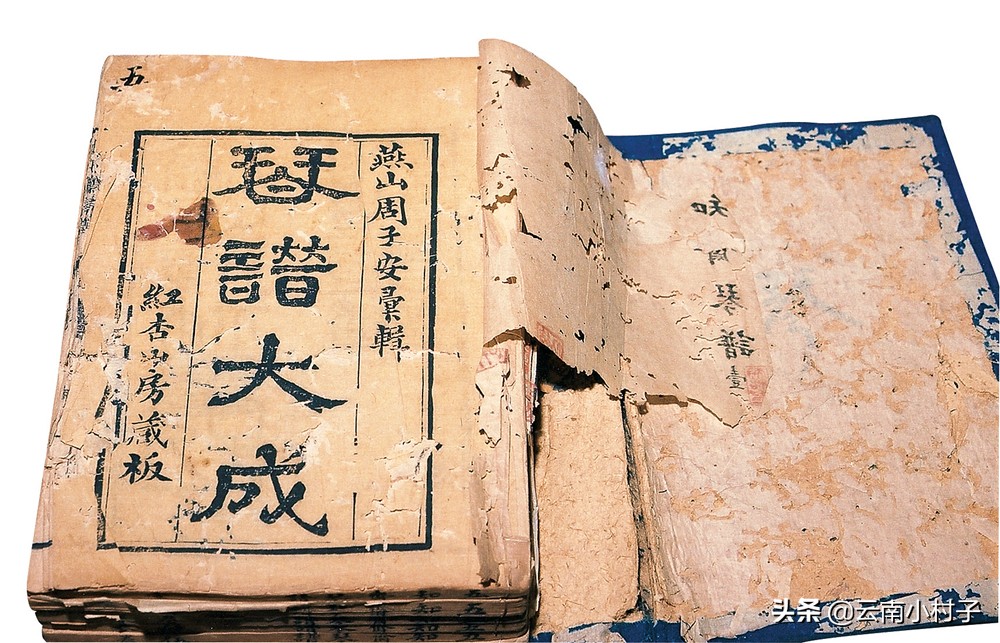 五
燕山周子安彙輯
琴譜大成
紅杏山房藏板
琴譜
头条 @云南小村子